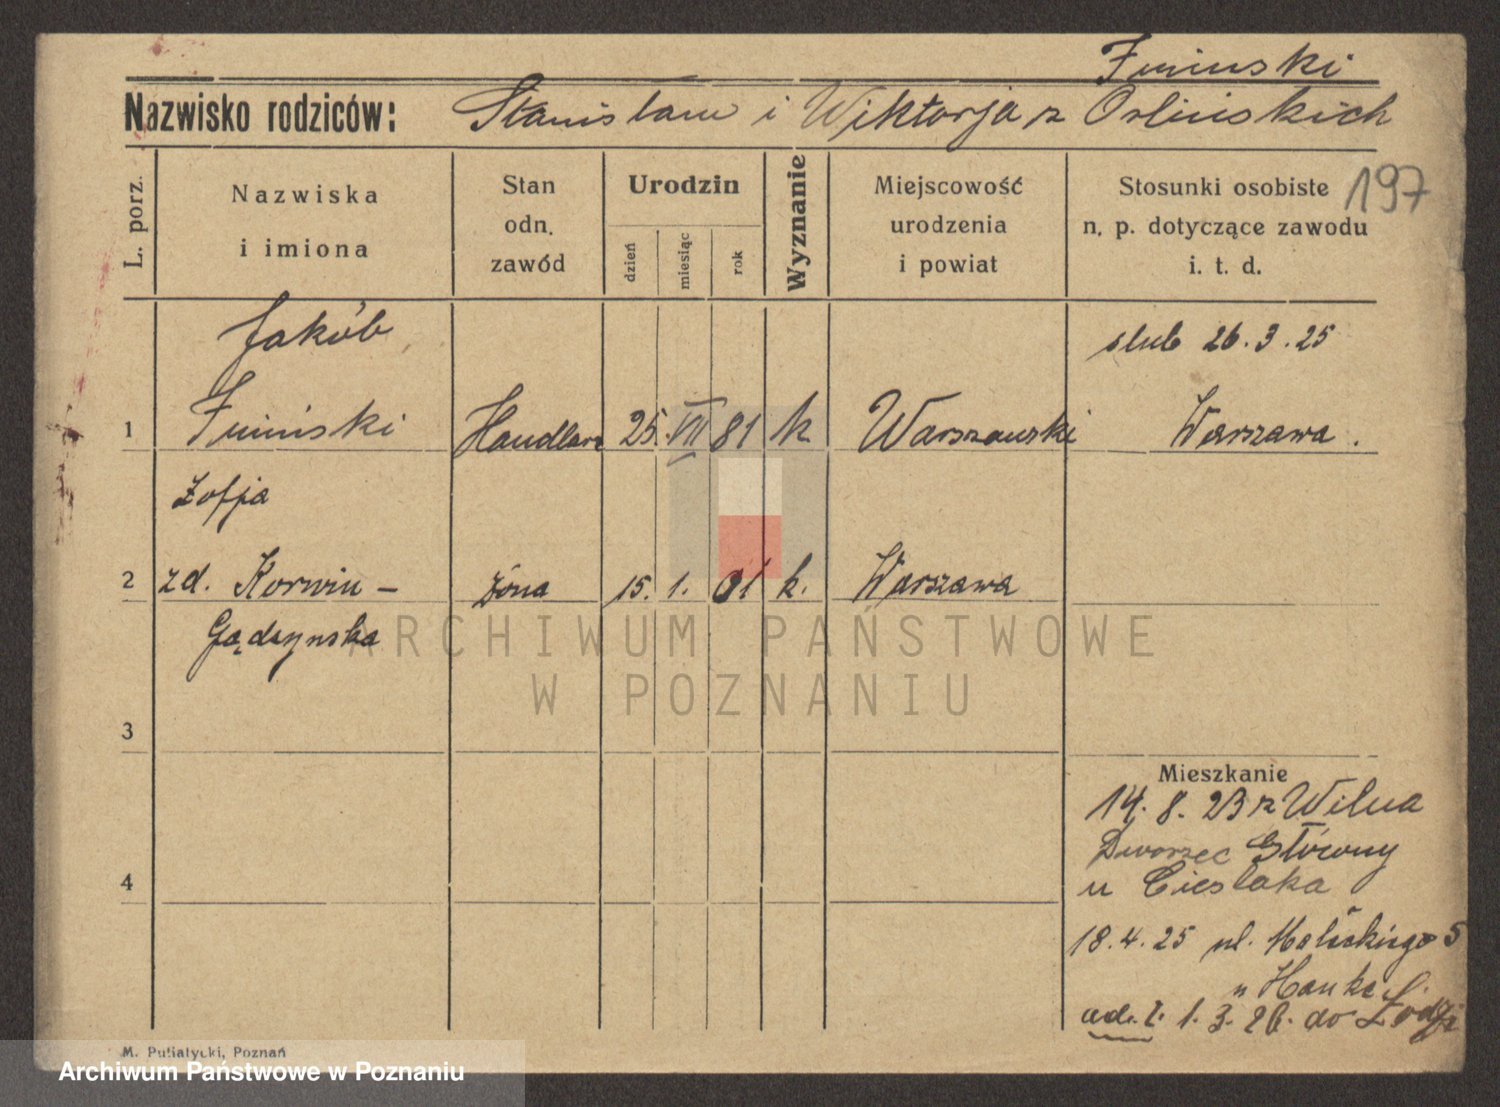 Nazwisko rodziców: Stanisław i Wiktorja z Orlińskich
197
L. porz.
Nazwiska
i imiona
Stan
odn.
zawód
Urodzin
dzień
miesiąc
rok
Wyznanie
Miejscowość
urodzenia
i powiat
Stosunki osobiste
n. p. dotyczące zawodu
i. t. d.
Jakób
ślub 26.3.25
1 Handlarz 25. VII 81 k Warszawski Warszawa.
Zofja
2 zd. Korwin - żona 15. 1. 01 k. Warszawa
Gądzynska
ARCHIWUM PAŃSTWOWE
W POZNANIU
3
Mieszkanie
14. 8. 23 z Wilna
Dworzec Główny
4
u Cieslaka
18.4.25 ul. Małeckiego 5
u Hanke
1. 3. 26. do Łodzi
M. Putiatycki, Poznań
Archiwum Państwowe w Poznaniu